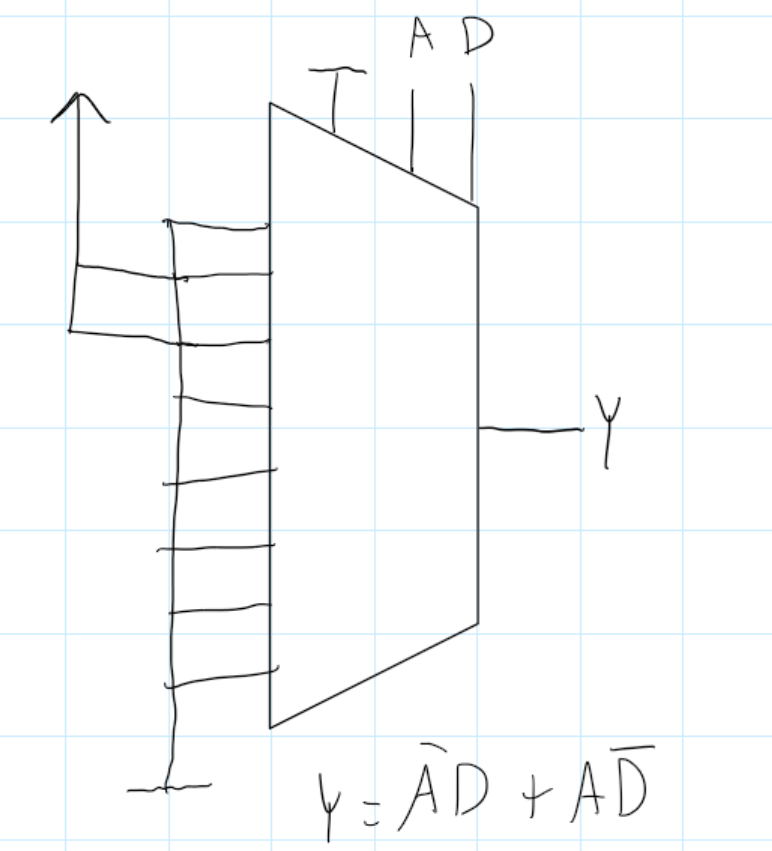 A D
Y
Y = A̅D + AD̅